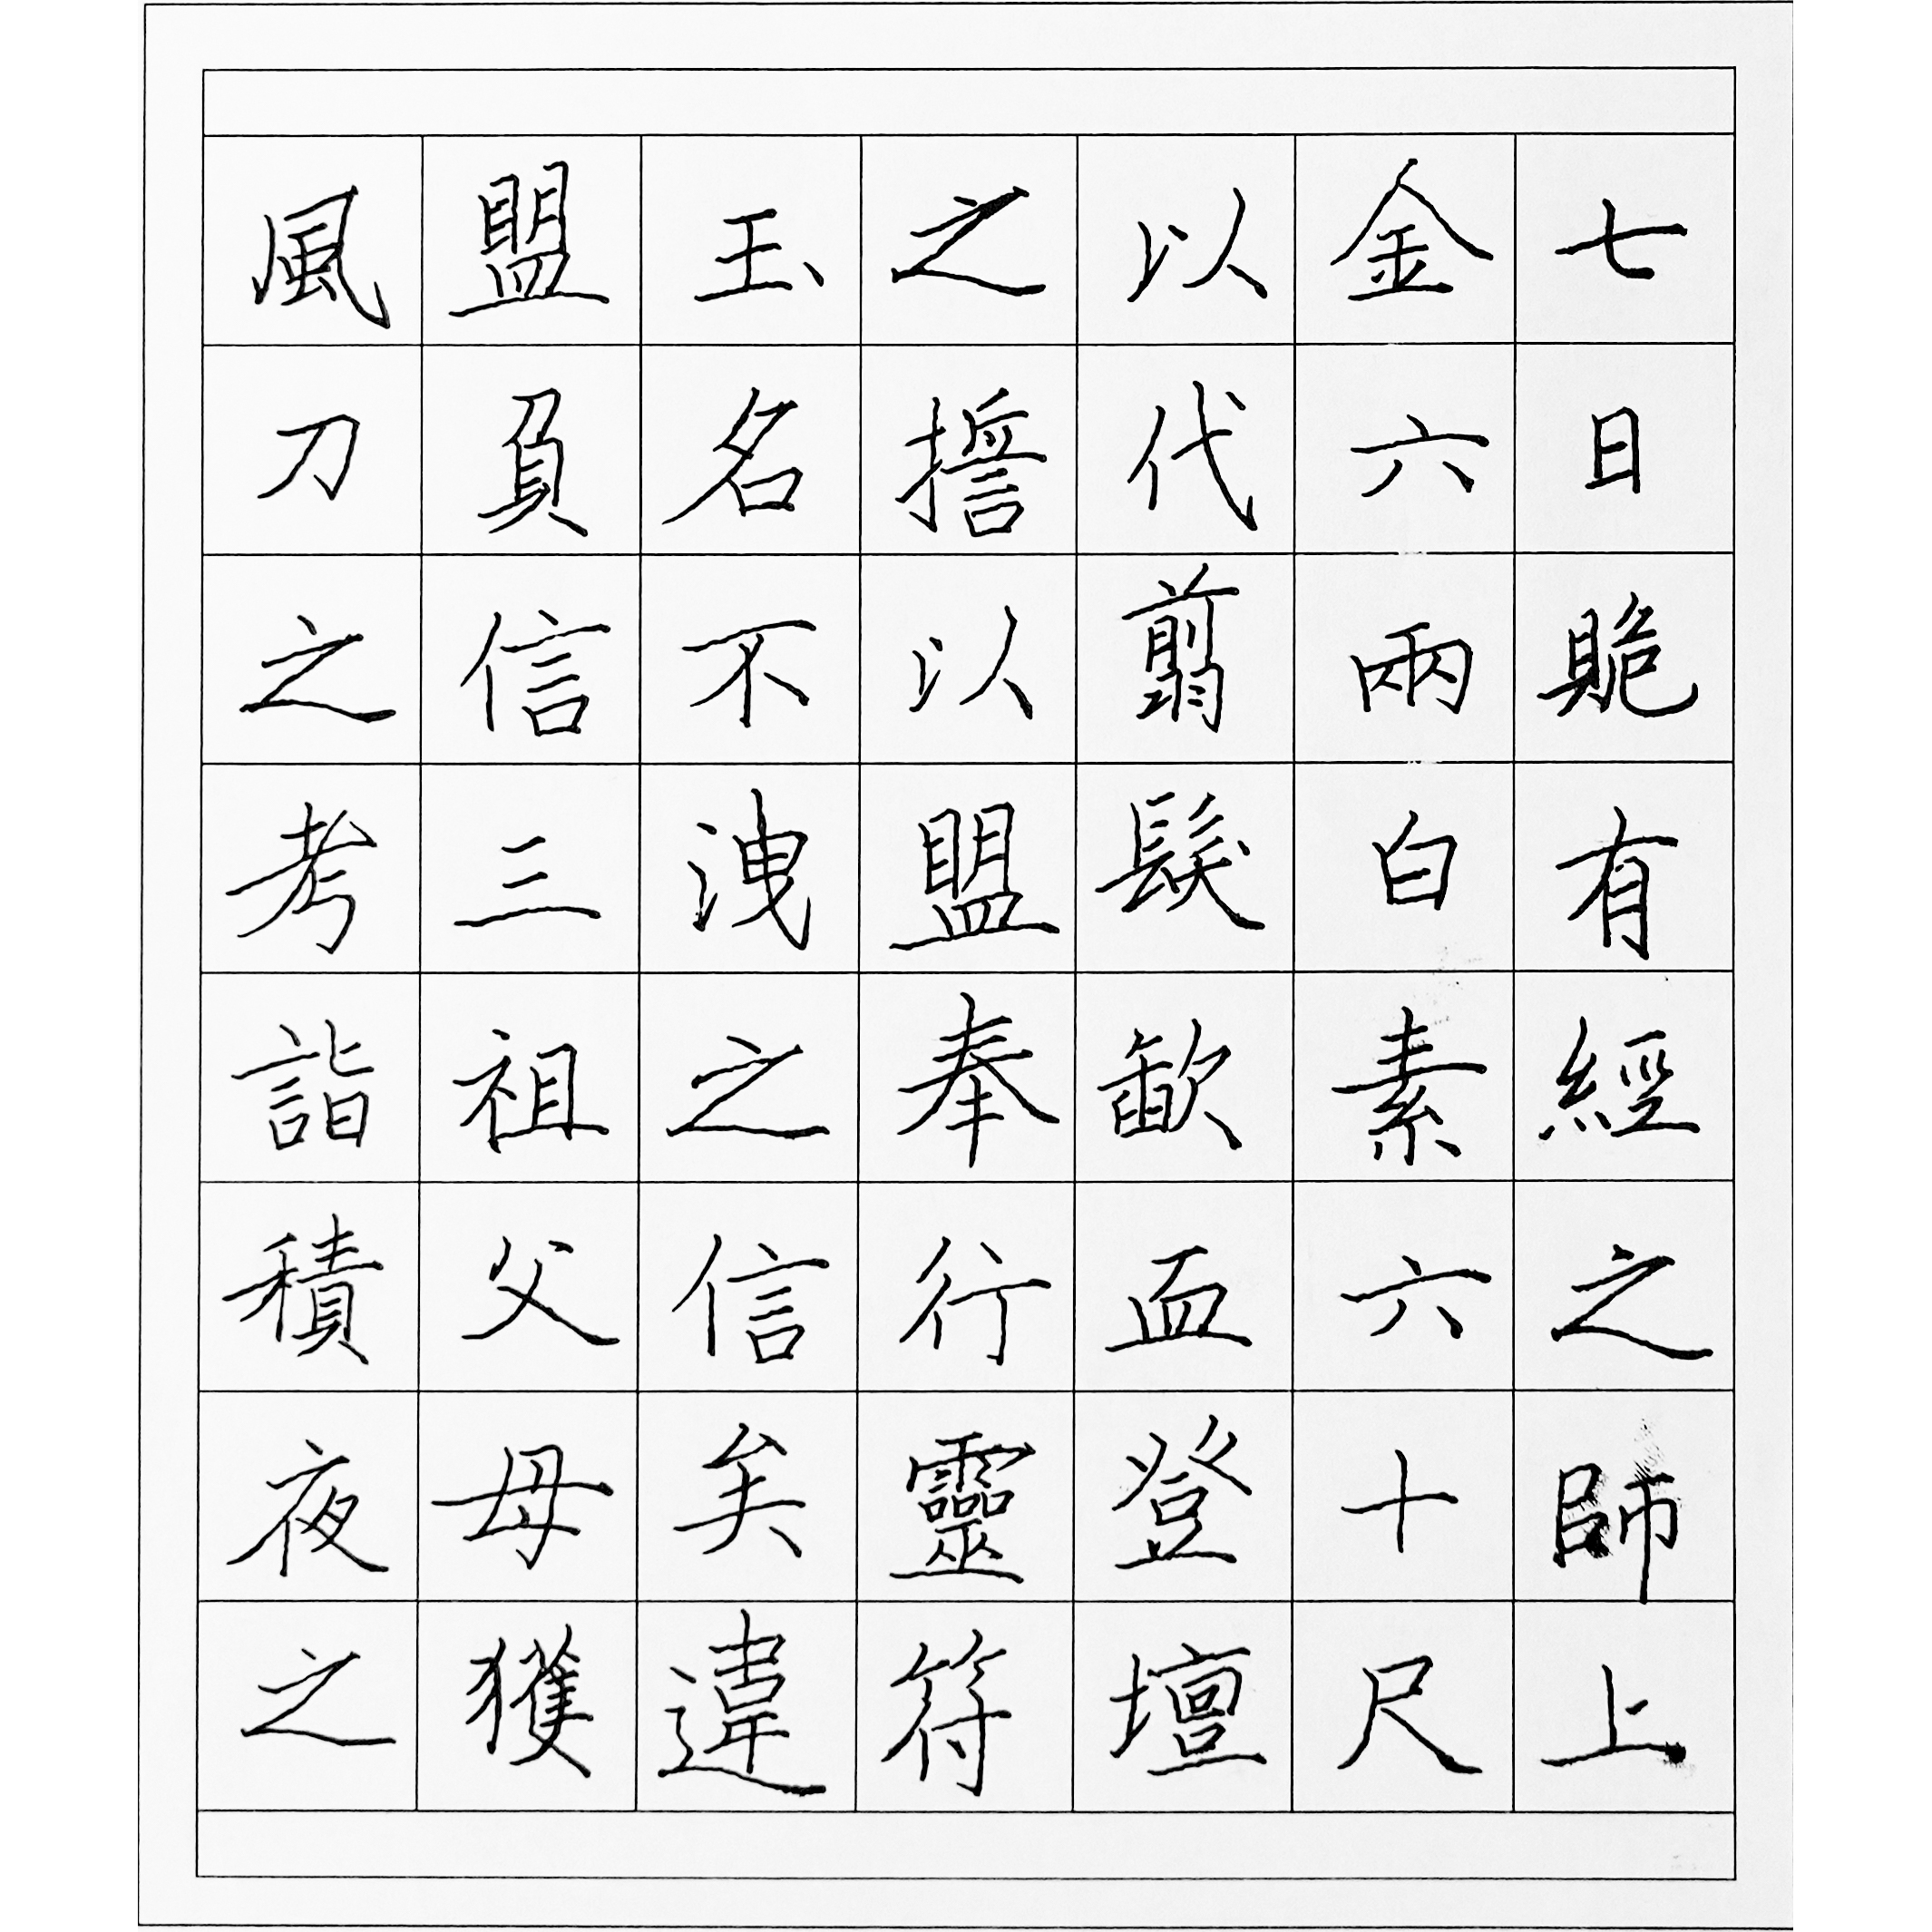 七日䞈有經之師上
金六兩白素六十尺
以代翦髮歃血登壇
之誓以盟奉行靈符
玉名不洩之信矣違
盟負信三祖父母獲
風刀之考詣積夜之